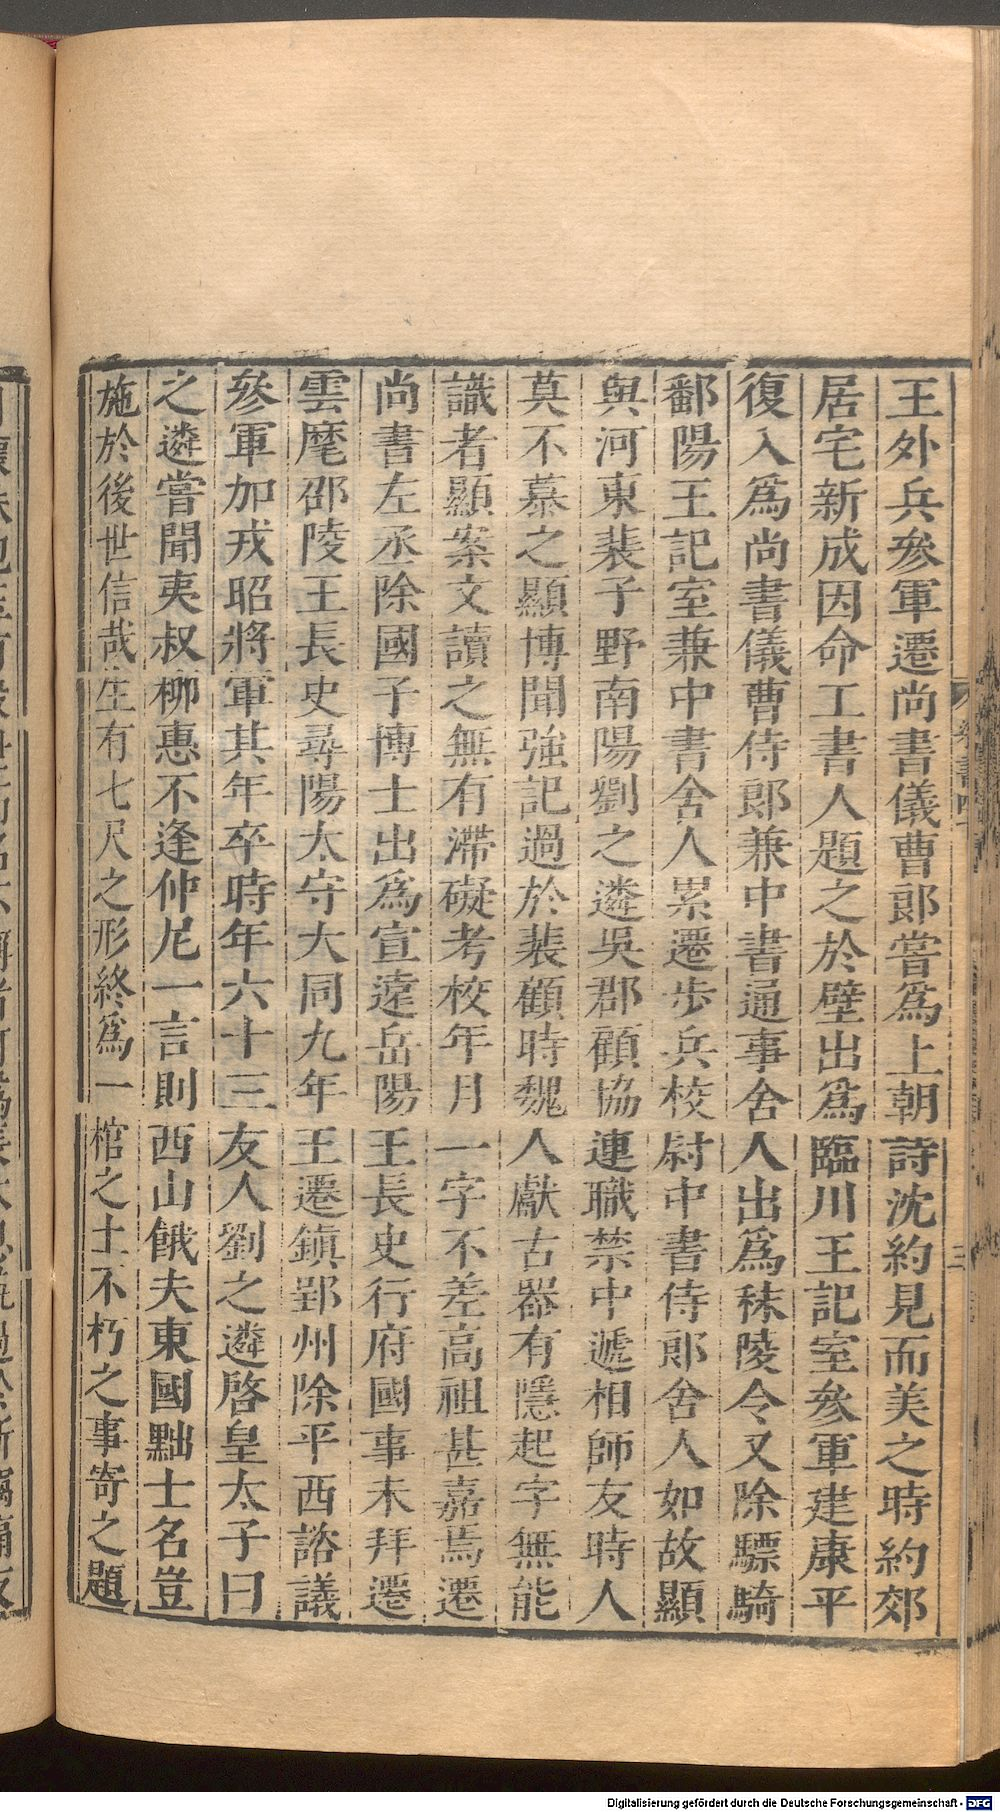 王外兵參軍遷尚書儀曹郎嘗爲上朝詩沈約見而美之時約郊
居宅新成因命工書人題之於壁出爲臨川王記室參軍建康平
復入爲尚書儀曹侍郎兼中書通事舍人出爲秣陵令又除驃騎
鄱陽王記室兼中書舍人累遷步兵校尉中書侍郎舍人如故顯
與河東裴子野南陽劉之遴吳郡顧協連職禁中遞相師友時人
莫不慕之顯博聞強記過於裴顧時魏人獻古器有隱起字無能
識者顯案文讀之無有滯礙考校年月一字不差高祖甚嘉焉遷
尚書左丞除國子博士出爲宣遠岳陽王長史行府國事未拜遷
雲麾邵陵王長史尋陽太守大同九年王遷鎮郢州除平西諮議
參軍加戎昭將軍其年卒時年六十三友人劉之遴啓皇太子曰
之遴嘗聞夷叔柳惠不逢仲尼一言則西山餓夫東國黜士名豈
施於後世信哉生有七尺之形終爲一棺之土不朽之事寄之題
Digitalisierung gefördert durch die Deutsche Forschungsgemeinschaft - DFG